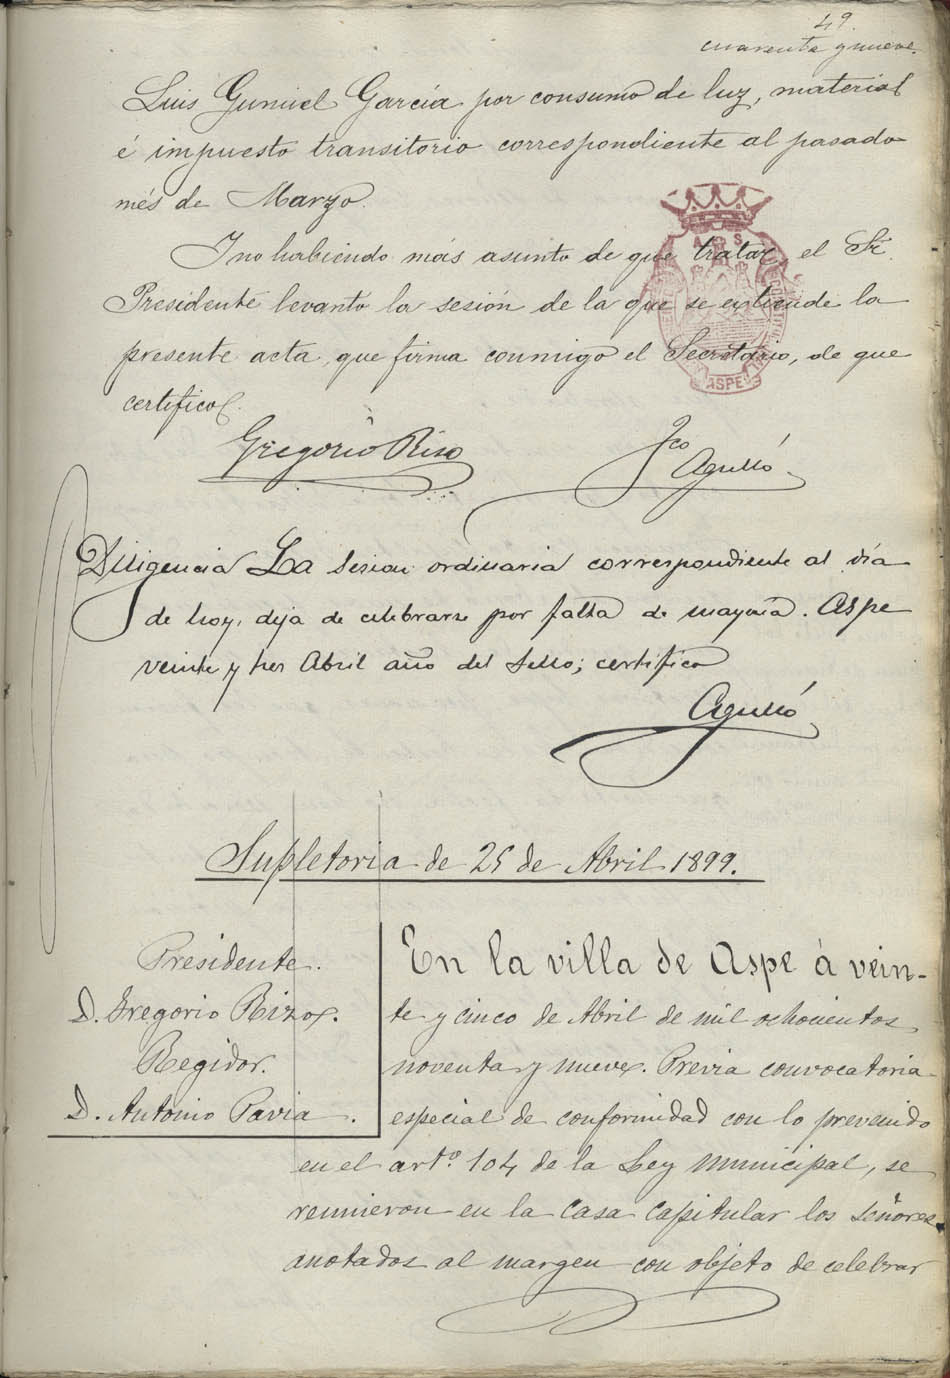 49.
cuarenta y nueve.
Luis Gumiel García por consumo de luz, material
é impuesto transitorio correspondiente al pasado
més de Marzo.
Y no habiendo más asunto de que tratar, el Sr.
Presidente levantó la sesión de la que se extiende la
presente acta, que firma conmigo el Secretario, de que
certifico.
ASPE
Gregorio Rizo
Fco Agulló
Diligencia La sesion ordinaria correspondiente al dia
de hoy, deja de celebrarse por falta de mayoria. Aspe
veinte y tres Abril año del sello; certifico
Agulló
Supletoria de 25 de Abril 1899.
Presidente.
D. Gregorio Rizo.
Regidor.
D. Antonio Pavia.
En la villa de Aspe á vein-
te y cinco de Abril de mil ochocientos
noventa y nueve. Previa convocatoria
especial de conformidad con lo prevenido
en el artº. 104 de la Ley Municipal, se
reunieron en la Casa Capitular los Señores
anotados al margen con objeto de celebrar